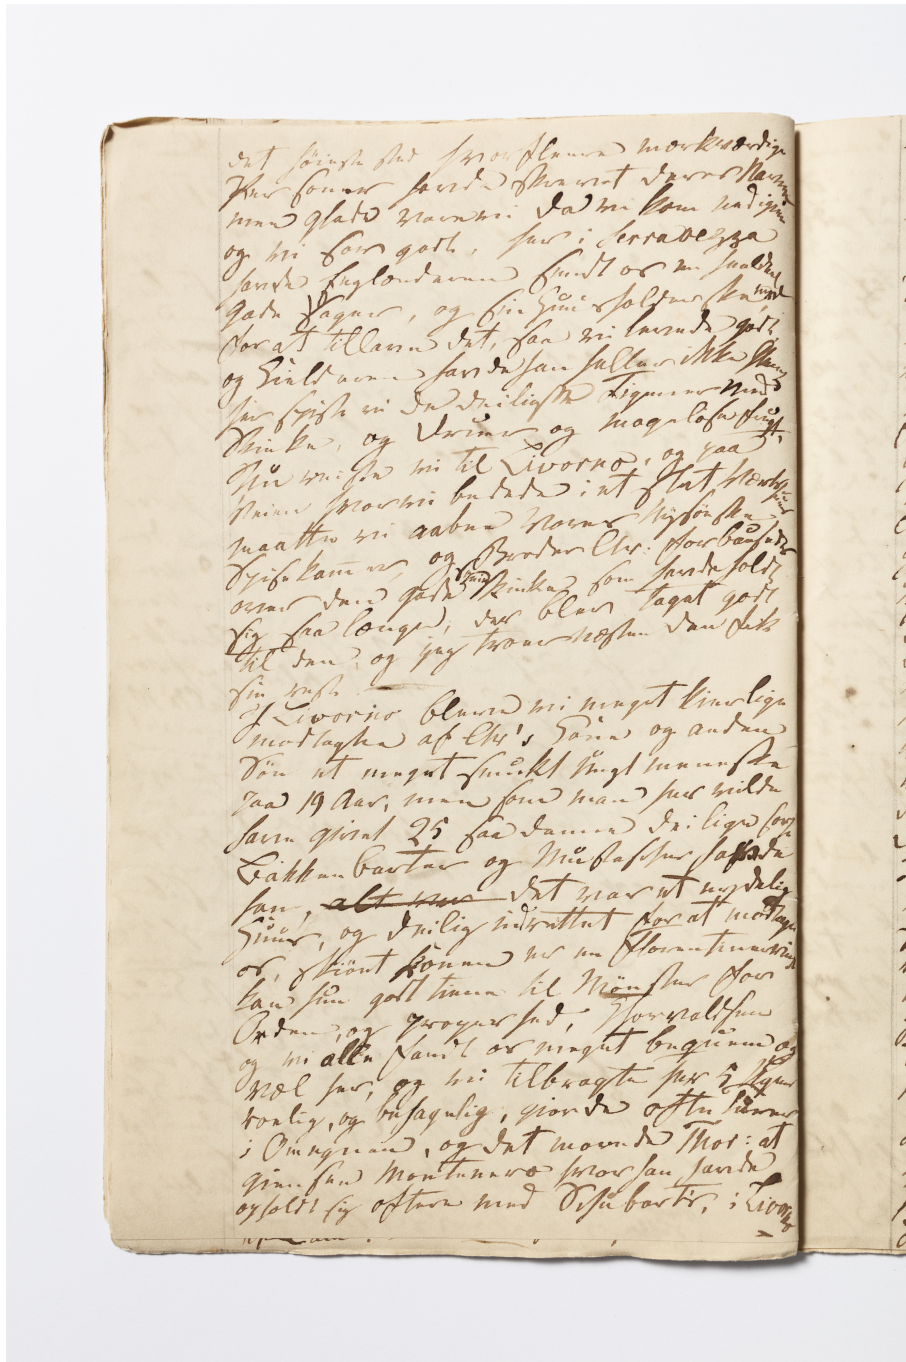 det høieste sted hvor fleere mærkværdige
Personer havde skrevet deres Navne
men glade vare vi da vi kom ned igien
og vi sov godt, her i Serravezza
havde Englænderen sendt os en heel deel
gode Sager, og sin Huusholderske med
for at tillave det, saa vi levede godt
og Kielderen havde han heller ikke
her spiste vi de deiligste Figener med
Skinke, og Druer og mageløse Frugt.
Nu reiste vi til Livorno, og paa
Veien hvor vi bedede i et slet Værtshuus
maatte vi aabne vores Nysøeske
Spisekam̄er, og Broder Chr: forbausedes
over den gode Skinke som havde holdt
sig saa længe, der blev taget godt
til den, og jeg troer næsten den fik
sin rest. —
I Livorno bleve vi meget kierlige
modtagne af Chr's Kone og anden
Søn et meget smukt ungt menneske
paa 19 Aar, men som man her vilde
have givet 25 saadanne deilige
Bakkenbarter og Mustascher havde
han, alt var det var et nydelig
Huus, og deilig indrettet for at modtage
os, skiønt konen er en Florentinerinde
kan hun godt tiene til Mønster for
Orden, og properhed, Thorvaldsen
og vi alle fandt os meget beqvem og
vel her, og vi tilbragte her 5 Uger
roelig, og behagelig, giorde ofte Turer
i Omegnen, og det morede Thor: at
giensee Montenero hvor han havde
opholdt sig oftere med Schubarts, i Livorno